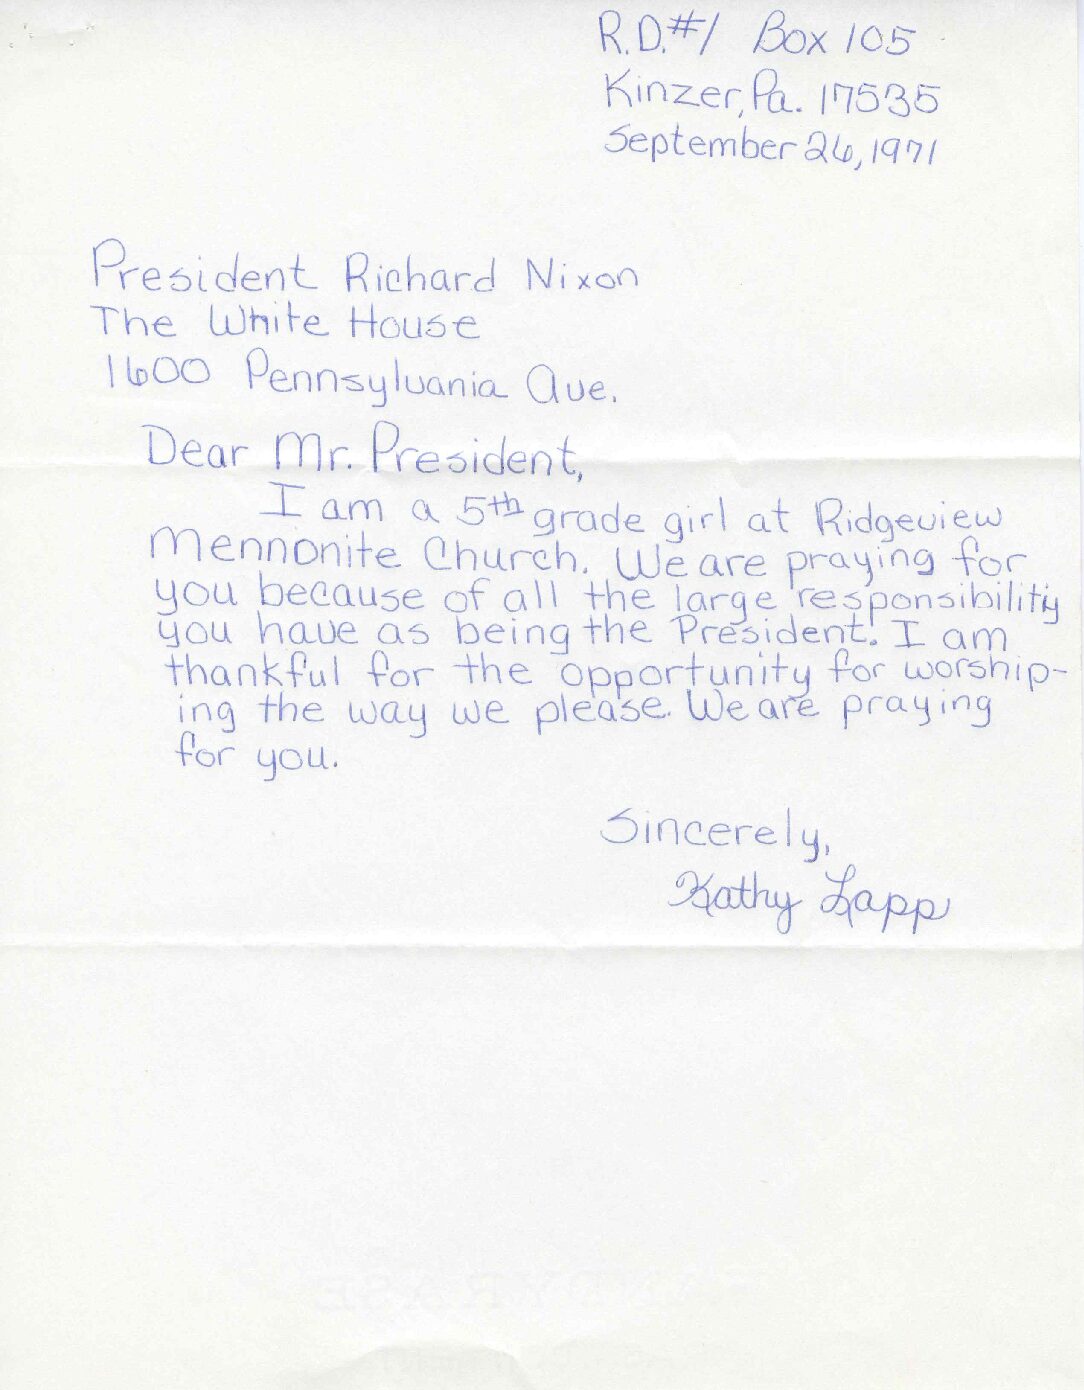 R.D.#1 Box 105
Kinzer, Pa. 17535
September 26, 1971
President Richard Nixon
The White House
1600 Pennsylvania Ave.
Dear Mr. President,
I am a 5th grade girl at Ridgeview
Mennonite Church. We are praying for
you because of all the large responsibility
you have as being the President. I am
thankful for the opportunity for worship-
ing the way we please. We are praying
for you.
Sincerely,
Kathy Lapp